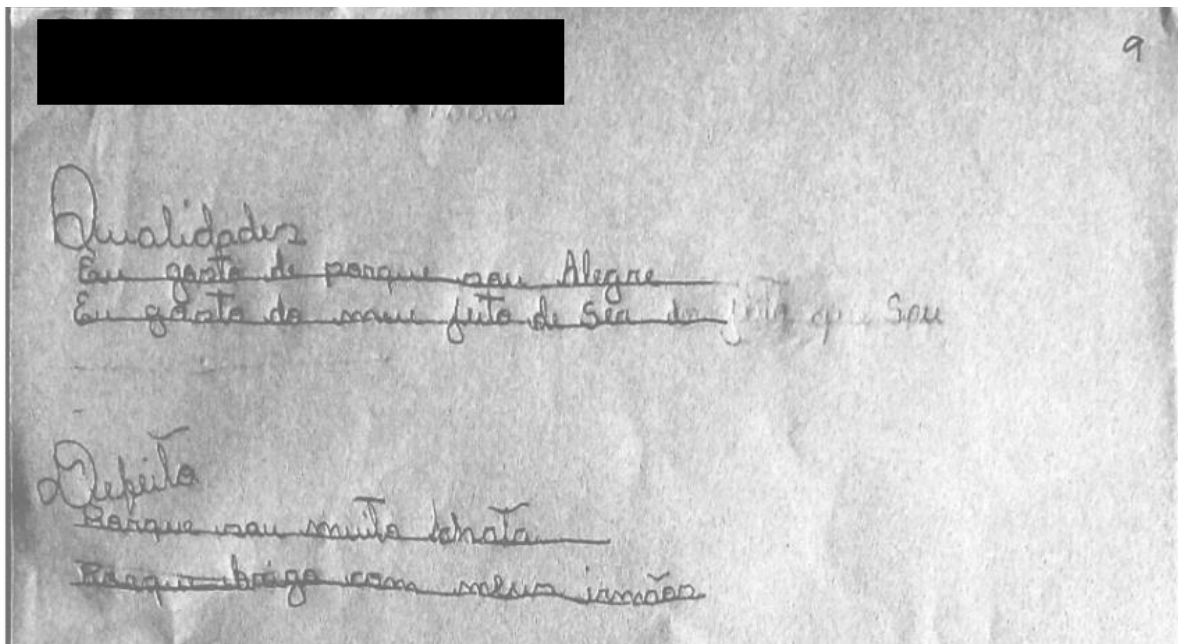 9
Qualidades
Eu gosto de porque sou Alegre
Eu gosto do meu jeito de Ser do jeito que Sou
Defeito
Porque sou muito chata
Porque brigo com meus irmãos